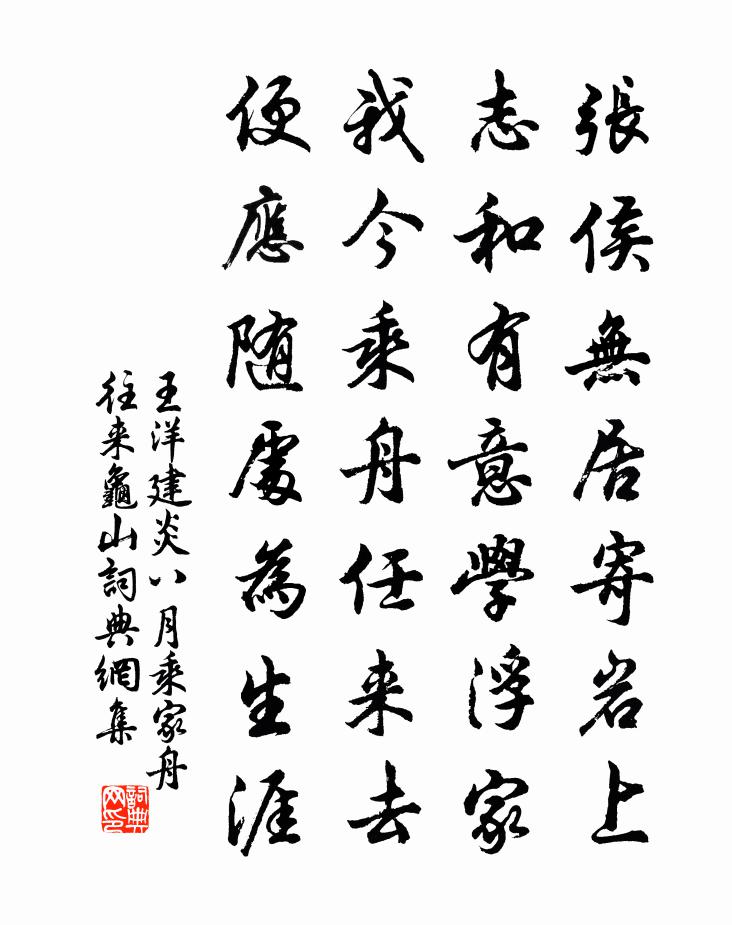 張侯無居寄岩上
志和有意學浮家
我今乘舟任来去
便應随處為生涯
王洋建炎八月乘家舟
往来龜山詞典網集
詞典网印